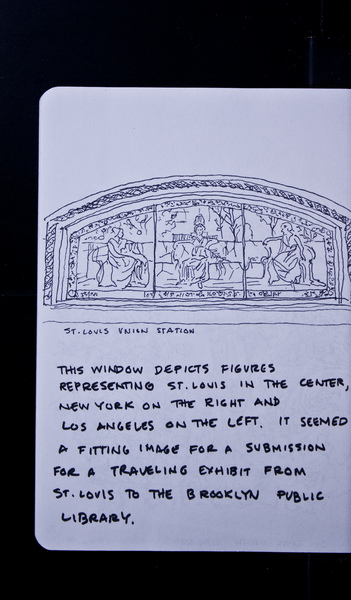 ST. LOUIS UNION STATION
THIS WINDOW DEPICTS FIGURES
REPRESENTING ST. LOUIS IN THE CENTER,
NEW YORK ON THE RIGHT AND
LOS ANGELES ON THE LEFT. IT SEEMED
A FITTING IMAGE FOR A SUBMISSION
FOR A TRAVELING EXHIBIT FROM
ST. LOUIS TO THE BROOKLYN PUBLIC
LIBRARY.